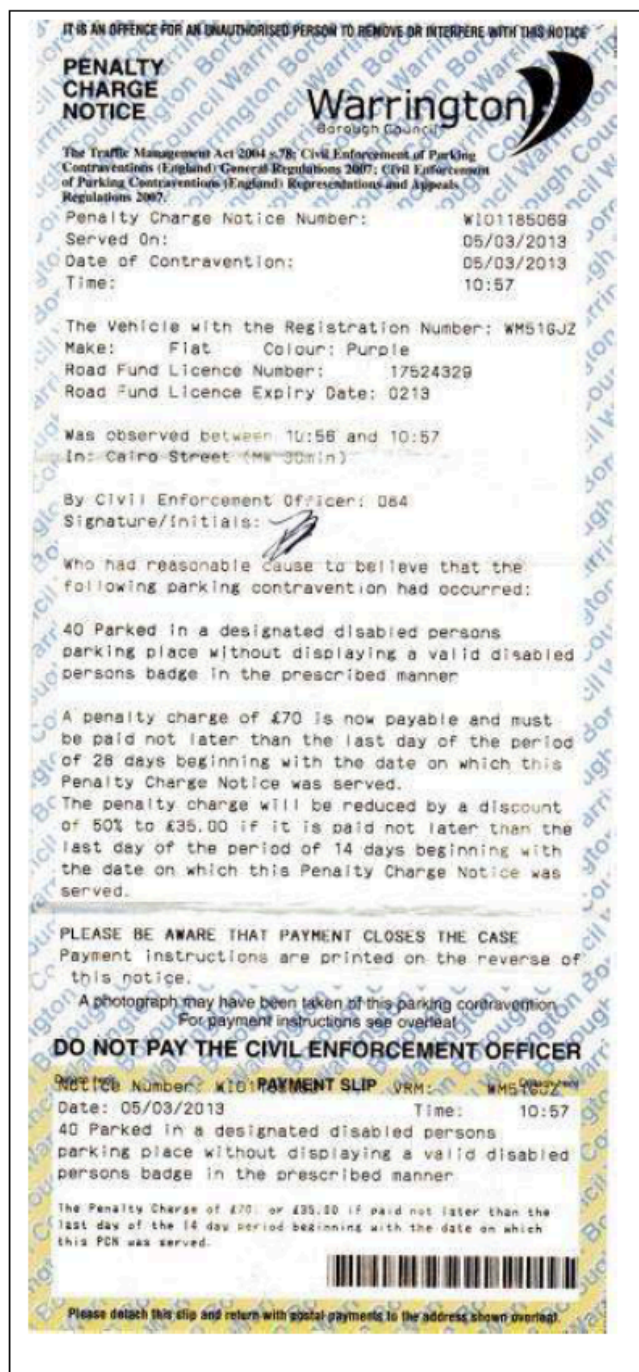 IT IS AN OFFENCE FOR AN UNAUTHORISED PERSON TO REMOVE OR INTERFERE WITH THIS NOTICE
PENALTY
CHARGE
NOTICE
Warrington
Borough Council
The Traffic Management Act 2004 s.78; Civil Enforcement of Parking
Contraventions (England) General Regulations 2007; Civil Enforcement
of Parking Contraventions (England) Representations and Appeals
Regulations 2007.
Penalty Charge Notice Number: WI01185069
Served On: 05/03/2013
Date of Contravention: 05/03/2013
Time: 10:57
The Vehicle with the Registration Number: WM51GJZ
Make: Fiat Colour: Purple
Road Fund Licence Number: 17524329
Road Fund Licence Expiry Date: 0213
Was observed between 10:56 and 10:57
In: Cairo Street (MW 30min)
By Civil Enforcement Officer: 064
Signature/Initials:
Who had reasonable cause to believe that the
following parking contravention had occurred:
40 Parked in a designated disabled persons
parking place without displaying a valid disabled
persons badge in the prescribed manner
A penalty charge of £70 is now payable and must
be paid not later than the last day of the period
of 28 days beginning with the date on which this
Penalty Charge Notice was served.
The penalty charge will be reduced by a discount
of 50% to £35.00 if it is paid not later than the
last day of the period of 14 days beginning with
the date on which this Penalty Charge Notice was
served.
PLEASE BE AWARE THAT PAYMENT CLOSES THE CASE
Payment instructions are printed on the reverse of
this notice.
A photograph may have been taken of this parking contravention
For payment instructions see overleaf
DO NOT PAY THE CIVIL ENFORCEMENT OFFICER
Notice Number: PAYMENT SLIP VRM: WM51GJZ
Date: 05/03/2013 Time: 10:57
40 Parked in a designated disabled persons
parking place without displaying a valid disabled
persons badge in the prescribed manner
The Penalty Charge of £70, or £35.00 if paid not later than the
last day of the 14 day period beginning with the date on which
this PCN was served.
Please detach this slip and return with postal payments to the address shown overleaf.